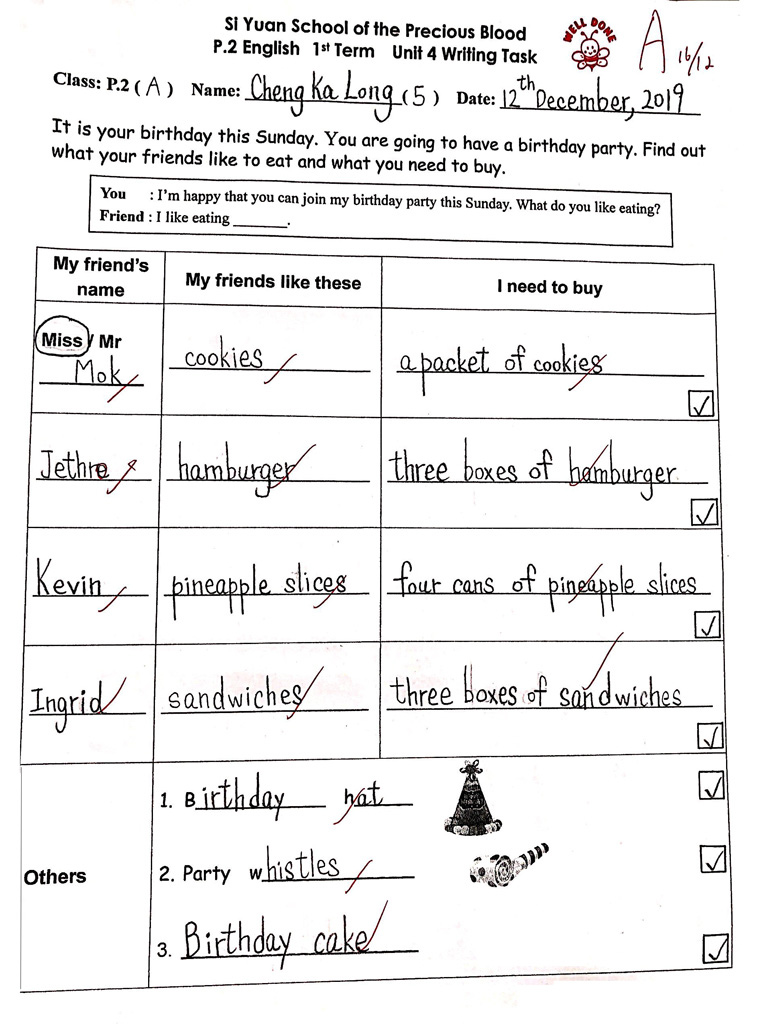 Si Yuan School of the Precious Blood
P.2 English 1st Term Unit 4 Writing Task
WELL DONE
A 16/12
Class: P.2 (A) Name: Cheng Ka Long (5) Date: 12th December, 2019
It is your birthday this Sunday. You are going to have a birthday party. Find out
what your friends like to eat and what you need to buy.
You : I'm happy that you can join my birthday party this Sunday. What do you like eating?
Friend : I like eating ______.
My friend's name
My friends like these
I need to buy
Miss / Mr
Mok
cookies
a packet of cookies
Jethre
hamburger
three boxes of hamburger
Kevin
pineapple slices
four cans of pineapple slices
Ingrid
sandwiches
three boxes of sandwiches
Others
1. Birthday hat
2. Party whistles
3. Birthday cake